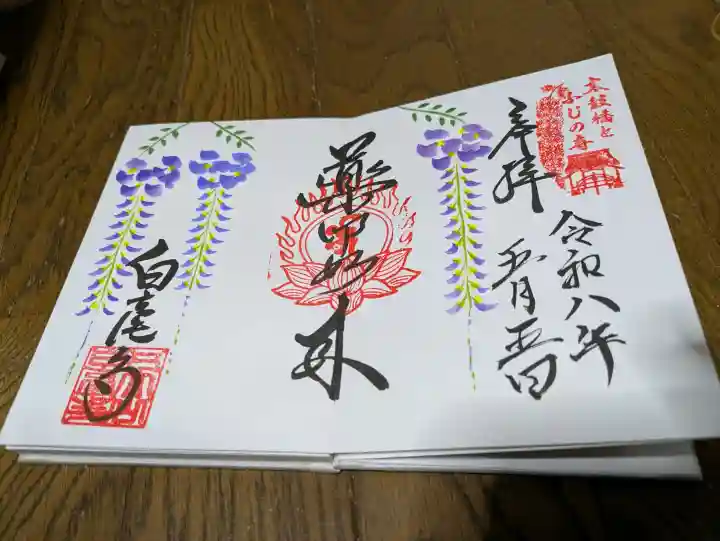 太鼓橋と
ふじの寺
奉拝
令和八年
五月五日
薬師如来
白毫寺